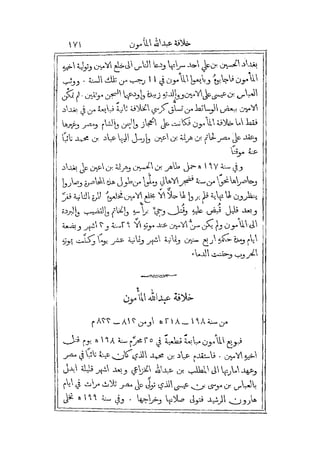 خلافة عبدالله المأمون ١٧١
بغداد الحسين بن علي احد سراتها ودعا الناس الى خلع الامين وتولية اخيه
المأمون فاجابوهُ وبايعوا المأمون في ١١ رجب من تلك السنة . ووثب
العباس بن عيسى على الامين ووالدته زبيدة واودعها السجن موثقين . ثم تمكن
الامين ببعض الوسائط من تسلق كرسي الخلافة ثانية فبايعهُ من في بغداد
فقط اما خلافة المأمون فكانت على الحجاز واليمن والشام ومصر وغيرها
وعقد على مصر لحاتم بن هرثمة بن اعين وارسل اليها عباد بن محمد نائبًا
عنهُ موقتًا
وفي سنة ١٩٧ ه حمل طاهر بن الحسين وهرثمة بن اعين على بغداد
وحاصراها نحوًا من سنة فضجر الاهالي وملوا من طول هذه المحاصرة وصاروا
ينظرون لها نهاية فلم يروا لها حلاًّ الا بخلع الامين فخلعوهُ المرة الثانية ففرَّ
وبعد قليل قُبض عليهِ وقُتل وجيءَ برأسهِ والخاتم والقضيب والبردة
الى المأمون ولم يكن سن الامين عند موتهِ الا ٢٦ سنة و٣ اشهر وبضعة
ايام ومدة حكمهِ اربع سنين وثمانية اشهر وثمانية عشر يومًا وكفَّت بموتهِ
الحروب وحقنت الدماء
خلافة عبدالله المأمون
من سنة ١٩٨ – ٢١٨ ه او من ٨١٢ – ٨٣٣ م
فبويع المأمون مبايعة قطعية في ٢٥ محرم سنة ١٩٨ ه يوم قتل
اخيهِ الامين . فاستقدم عباد بن محمد الذي كان عينهُ نائبًا في مصر
وعهد امارتها الى المطلب بن عبدالله الخزاعي وبعد اشهر قليلة ابدل
بالعباس بن موسى بن عيسى الذي تولى على مصر ثلاث مرات في ايام
هارون الرشيد فتولى صلاتها وخراجها . وفي سنة ١٩٩ ه تخلى